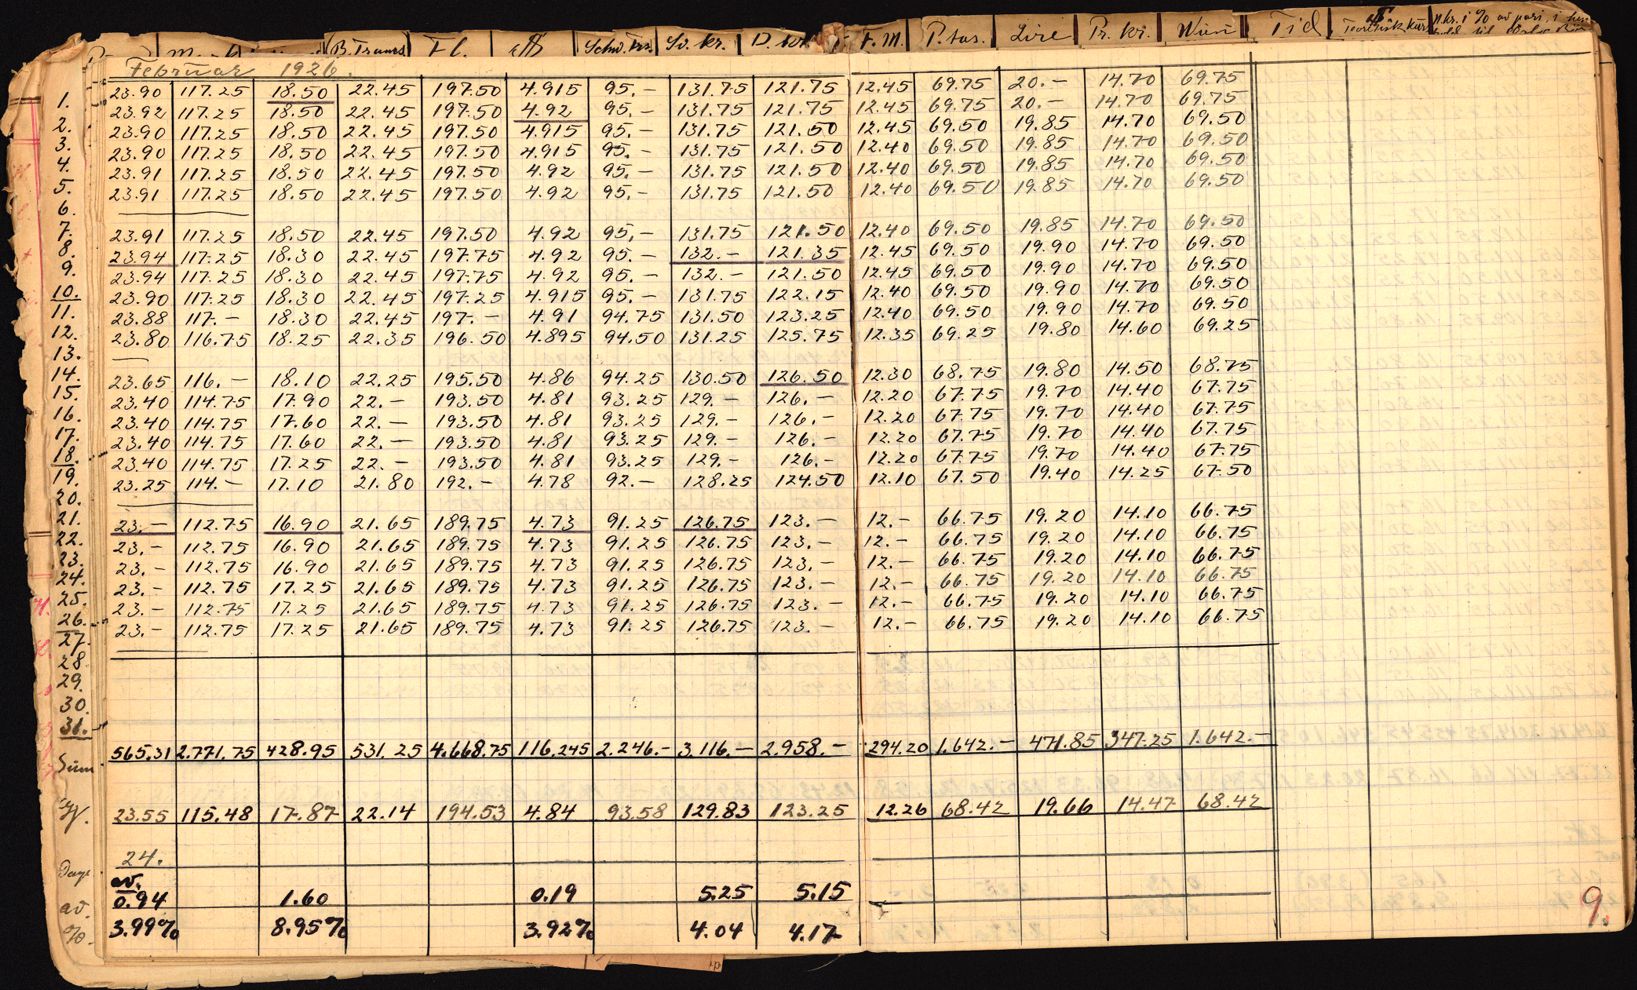 B. Francs Fl. $ Schw. Frs. Sv. kr. D. kr. F.M. Ptas. Lire Pr. kr. Wien Tid Teoretisk kurs N kr. i % av pari, i
Februar 1926.
1. 23.90 117.25 18.50 22.45 197.50 4.915 95.- 131.75 121.75 12.45 69.75 20.- 14.70 69.75
2. 23.92 117.25 18.50 22.45 197.50 4.92 95.- 131.75 121.75 12.45 69.75 20.- 14.70 69.75
3. 23.90 117.25 18.50 22.45 197.50 4.915 95.- 131.75 121.50 12.45 69.50 19.85 14.70 69.50
4. 23.90 117.25 18.50 22.45 197.50 4.915 95.- 131.75 121.50 12.40 69.50 19.85 14.70 69.50
5. 23.91 117.25 18.50 22.45 197.50 4.92 95.- 131.75 121.50 12.40 69.50 19.85 14.70 69.50
6. 23.91 117.25 18.50 22.45 197.50 4.92 95.- 131.75 121.50 12.40 69.50 19.85 14.70 69.50
7.
8. 23.91 117.25 18.50 22.45 197.50 4.92 95.- 131.75 121.50 12.40 69.50 19.85 14.70 69.50
9. 23.94 117.25 18.30 22.45 197.75 4.92 95.- 132.- 121.35 12.45 69.50 19.90 14.70 69.50
10. 23.94 117.25 18.30 22.45 197.75 4.92 95.- 132.- 121.50 12.45 69.50 19.90 14.70 69.50
11. 23.90 117.25 18.30 22.45 197.25 4.915 95.- 131.75 122.15 12.40 69.50 19.90 14.70 69.50
12. 23.88 117.- 18.30 22.45 197.- 4.91 94.75 131.50 123.25 12.40 69.50 19.90 14.70 69.50
13. 23.80 116.75 18.25 22.35 196.50 4.895 94.50 131.25 125.75 12.35 69.25 19.80 14.60 69.25
14.
15. 23.65 116.- 18.10 22.25 195.50 4.86 94.25 130.50 126.50 12.30 68.75 19.80 14.50 68.75
16. 23.40 114.75 17.90 22.- 193.50 4.81 93.25 129.- 126.- 12.20 67.75 19.70 14.40 67.75
17. 23.40 114.75 17.60 22.- 193.50 4.81 93.25 129.- 126.- 12.20 67.75 19.70 14.40 67.75
18. 23.40 114.75 17.60 22.- 193.50 4.81 93.25 129.- 126.- 12.20 67.75 19.70 14.40 67.75
19. 23.40 114.75 17.25 22.- 193.50 4.81 93.25 129.- 126.- 12.20 67.75 19.70 14.40 67.75
20. 23.25 114.- 17.10 21.80 192.- 4.78 92.- 128.25 124.50 12.10 67.50 19.40 14.25 67.50
21.
22. 23.- 112.75 16.90 21.65 189.75 4.73 91.25 126.75 123.- 12.- 66.75 19.20 14.10 66.75
23. 23.- 112.75 16.90 21.65 189.75 4.73 91.25 126.75 123.- 12.- 66.75 19.20 14.10 66.75
24. 23.- 112.75 16.90 21.65 189.75 4.73 91.25 126.75 123.- 12.- 66.75 19.20 14.10 66.75
25. 23.- 112.75 17.25 21.65 189.75 4.73 91.25 126.75 123.- 12.- 66.75 19.20 14.10 66.75
26. 23.- 112.75 17.25 21.65 189.75 4.73 91.25 126.75 123.- 12.- 66.75 19.20 14.10 66.75
27. 23.- 112.75 17.25 21.65 189.75 4.73 91.25 126.75 123.- 12.- 66.75 19.20 14.10 66.75
28.
29.
30.
31.
Sum 565.31 2.771.75 428.95 531.25 4.668.75 116.245 2.246.- 3.116.- 2.958.- 294.20 1.642.- 471.85 347.25 1.642.-
23.55 115.48 17.87 22.14 194.53 4.84 93.58 129.83 123.25 12.26 68.42 19.66 14.47 68.42
Dage 24.
av.
av. 0.94 1.60 0.19 5.25 5.15
% 3.99% 8.95% 3.92% 4.04 4.17
9.